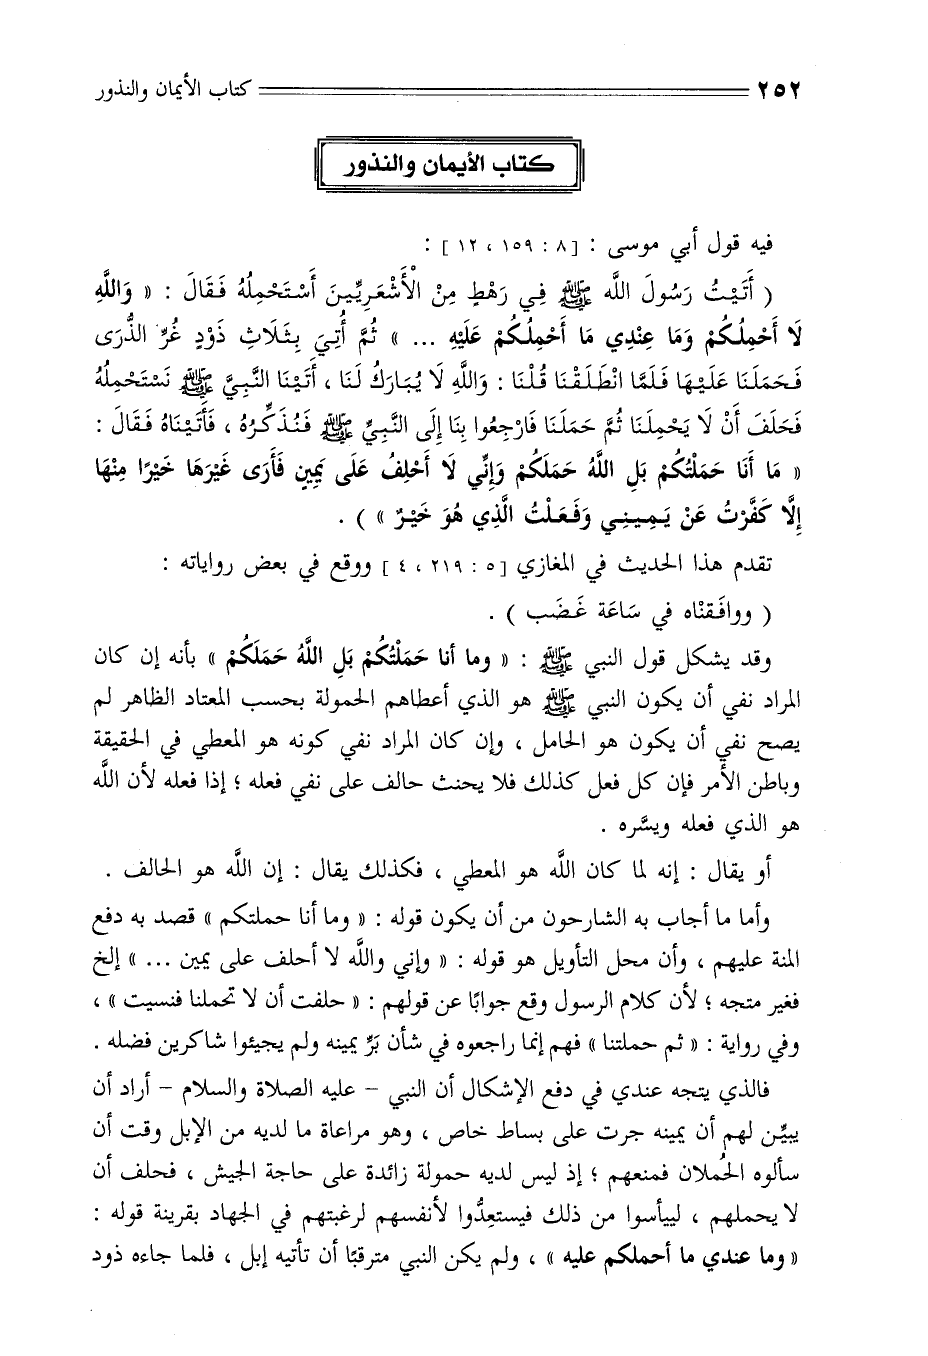 ٢٥٢ كتاب الأيمان والنذور
كتاب الأيمان والنذور
فيه قول أبي موسى : [ ٨ : ١٥٩ ، ١٢ ] :
( أَتَيْتُ رَسُولَ اللَّه ﷺ فِي رَهْطٍ مِنْ الْأَشْعَرِيِّينَ أَسْتَحْمِلُهُ فَقَالَ : « وَاللَّهِ
لَا أَحْمِلُكُمْ وَمَا عِنْدِي مَا أَحْمِلُكُمْ عَلَيْهِ ... » ثُمَّ أُتِيَ بِثَلَاثِ ذَوْدٍ غُرِّ الذُّرَى
فَحَمَلَنَا عَلَيْهَا فَلَمَّا انْطَلَقْنَا قُلْنَا : وَاللَّهِ لَا يُبَارَكُ لَنَا ، أَتَيْنَا النَّبِيَّ ﷺ نَسْتَحْمِلُهُ
فَحَلَفَ أَنْ لَا يَحْمِلَنَا ثُمَّ حَمَلَنَا فَارْجِعُوا بِنَا إِلَى النَّبِيِّ ﷺ فَنُذَكِّرُهُ ، فَأَتَيْنَاهُ فَقَالَ :
« مَا أَنَا حَمَلْتُكُمْ بَلِ اللَّهُ حَمَلَكُمْ وَإِنِّي لَا أَحْلِفُ عَلَى يَمِينٍ فَأَرَى غَيْرَهَا خَيْرًا مِنْهَا
إِلَّا كَفَّرْتُ عَنْ يَمِينِي وَفَعَلْتُ الَّذِي هُوَ خَيْرٌ » ) .
تقدم هذا الحديث في المغازي [ ٥ : ٢١٩ ، ٤ ] ووقع في بعض رواياته :
( ووافَقنْاه في سَاعَة غَضَب ) .
وقد يشكل قول النبي ﷺ : « وما أنا حَمَلْتُكُمْ بَلِ اللَّهُ حَمَلَكُمْ » بأنه إن كان
المراد نفي أن يكون النبي ﷺ هو الذي أعطاهم الحمولة بحسب المعتاد الظاهر لم
يصح نفي أن يكون هو الحامل ، وإن كان المراد نفي كونه هو المعطي في الحقيقة
وباطن الأمر فإن كل فعل كذلك فلا يحنث حالف على نفي فعله ؛ إذا فعله لأن اللَّه
هو الذي فعله ويسَّره .
أو يقال : إنه لما كان اللَّه هو المعطي ، فكذلك يقال : إن اللَّه هو الحالف .
وأما ما أجاب به الشارحون من أن يكون قوله : « وما أنا حملتكم » قصد به دفع
المنة عليهم ، وأن محل التأويل هو قوله : « وإني واللَّه لا أحلف على يمين ... » إلخ
فغير متجه ؛ لأن كلام الرسول وقع جوابًا عن قولهم : « حلفت أن لا تحملنا فنسيت » ،
وفي رواية : « ثم حملتنا » فهم إنما راجعوه في شأن بَرِّ يمينه ولم يجيئوا شاكرين فضله .
فالذي يتجه عندي في دفع الإشكال أن النبي – عليه الصلاة والسلام – أراد أن
يبيِّن لهم أن يمينه جرت على بساط خاص ، وهو مراعاة ما لديه من الإبل وقت أن
سألوه الحُملان فمنعهم ؛ إذ ليس لديه حمولة زائدة على حاجة الجيش ، فحلف أن
لا يحملهم ، لييأسوا من ذلك فيستعدُّوا لأنفسهم لرغبتهم في الجهاد بقرينة قوله :
« وما عندي ما أحملكم عليه » ، ولم يكن النبي مترقبًا أن تأتيه إبل ، فلما جاءه ذود